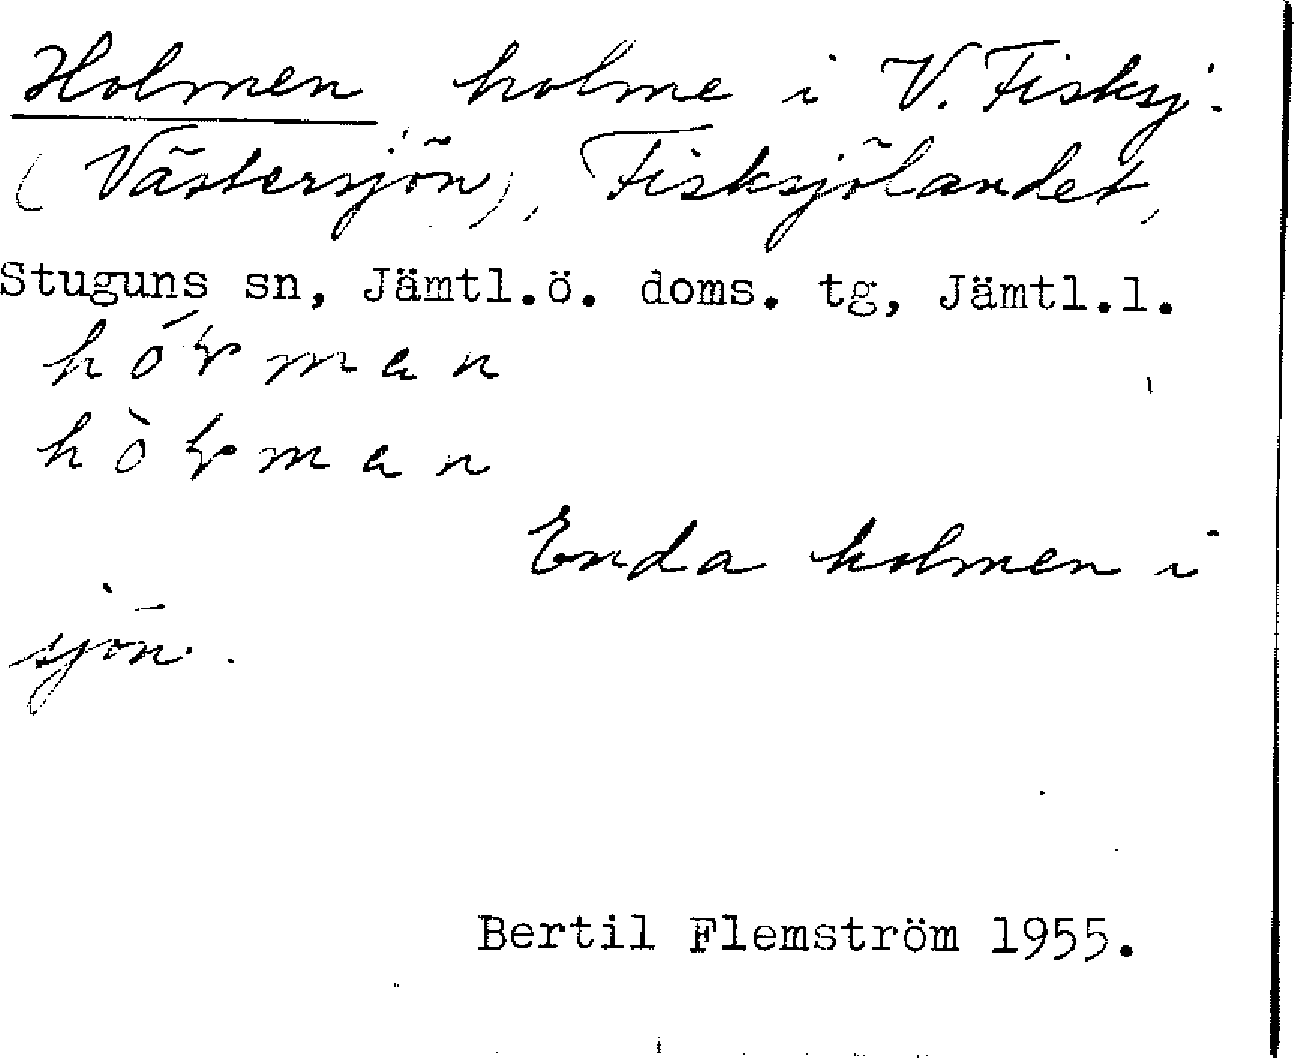 Holmen holme i V. Fisksj.
(Västersjön), Fisksjölandet,
Stuguns sn, Jämtl.ö. doms. tg, Jämtl.l.
Enda holmen i
sjön.
Bertil Flemström 1955.